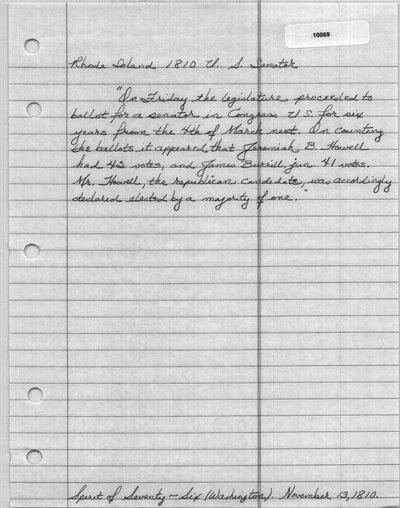 10069
Rhode Island 1810 U. S. Senator
"On Friday the legislature proceeded to
ballot for a senator in Congress U.S. for six
years from the 4th of March next. On counting
the ballots, it appeared that Jeremiah B. Howell
had 42 votes, and James Burrill, jun. 41 votes.
Mr. Howell, the republican candidate, was accordingly
declared elected by a majority of one."
Spirit of Seventy-Six (Washington). November 13, 1810.